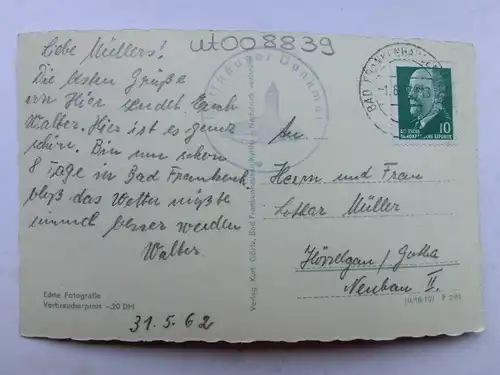 ut008839
Liebe Müllers!
Die besten Grüße
von Hier sendet Euch
Walter. Hier ist es ganz
schön. Bin nun schon
8 Tage in Bad Frankenh.
bloß das Wetter müßte
einmal besser werden
Walter
31.5.62
Echte Fotografie
Verbraucherpreis –20 DM
Kyffhäuser Denkmal
Verlag Kurt Gösta, Bad Frankenhausen
BAD FRANKENHAUSEN
DEUTSCHE
DEMOKRATISCHE REPUBLIK
10
An
Herrn und Frau
Lothar Müller
Hörselgau/Gotha
Neubau II.